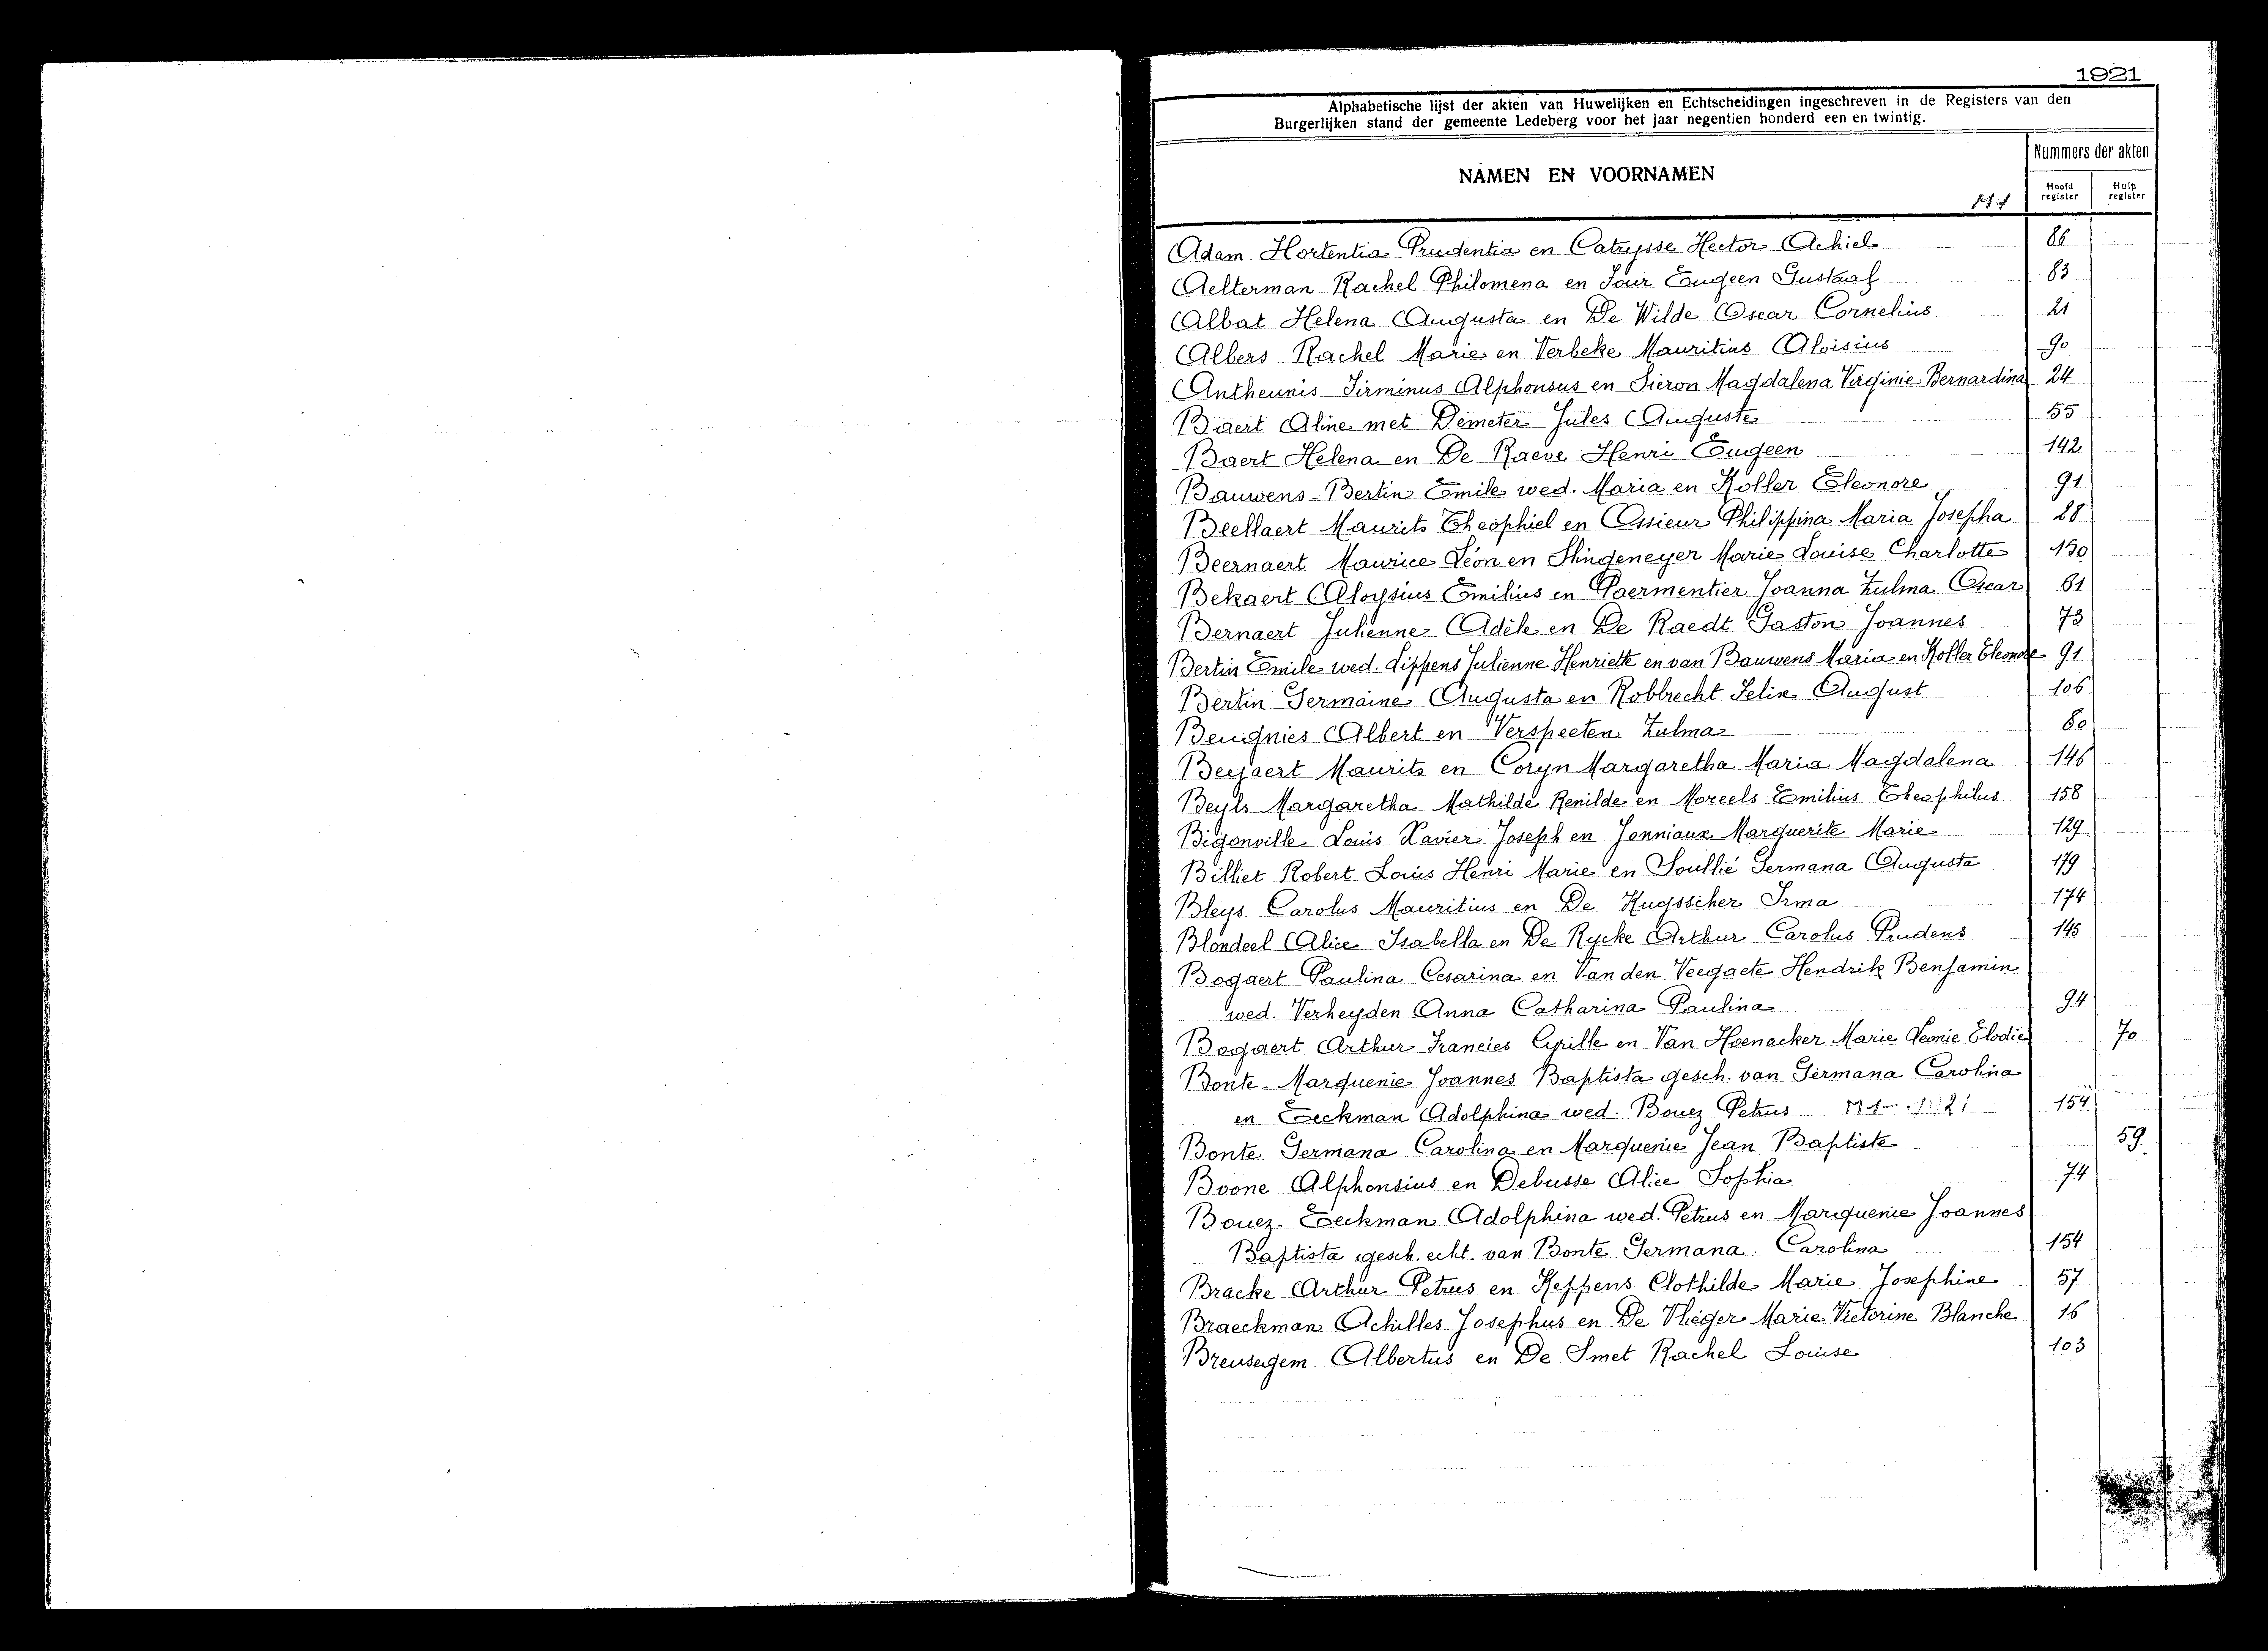 1921
Alphabetische lijst der akten van Huwelijken en Echtscheidingen ingeschreven in de Registers van den
Burgerlijken stand der gemeente Ledeberg voor het jaar negentien honderd een en twintig.
NAMEN EN VOORNAMEN
Nummers der akten
Hoofd register
Hulp register
Adam Hortentia Prudentia en Catrysse Hector Achiel 86
Aelterman Rachel Philomena en Eugeen Gustaaf 83
Albat Helena Augusta en De Wilde Oscar Cornelius 21
Albers Rachel Marie en Verbeke Mauritius Aloisius 90
Antheunis Firminus Alphonsus en Fieron Magdalena Virginie Bernardina 24
Baert Aline met Demeter Jules Auguste 55
Baert Helena en De Raeve Henri Eugeen 142
Bauwens-Bertin Emile wed. Maria en Koller Eleonore 91
Beellaert Maurits Theophiel en Ossieur Philippina Maria Josepha 28
Beernaert Maurice Léon en Slingeneyer Marie Louise Charlotte 150
Bekaert Aloysius Emilius en Paermentier Joanna Zulma Oscar 61
Bernaert Julienne Adèle en De Raedt Gaston Joannes 73
Bertin Emile wed. Lippens Julienne Henriette en van Bauwens Maria en Koller Eleonore 91
Bertin Germaine Augusta en Robbrecht Felix August 106
Beugnies Albert en Verspeeten Zulma 60
Beyaert Maurits en Coryn Margaretha Maria Magdalena 146
Beyls Margaretha Mathilde Renilde en Moreels Emilius Theophilus 158
Bigonville Louis Xavier Joseph en Jonniaux Marguerite Marie 129
Billiet Robert Louis Henri Marie en Soullié Germana Augusta 179
Bleys Carolus Mauritius en De Kuysscher Irma 174
Blondeel Alice Isabella en De Rycke Arthur Carolus Prudens 145
Bogaert Paulina Cesarina en Van den Veegaete Hendrik Benjamin
wed. Verheyden Anna Catharina Paulina 94
Bogaert Arthur Francies Cyrille en Van Hoenacker Marie Leonie Elodie 70
Bonte-Marquenie Joannes Baptista gesch. van Germana Carolina
en Eeckman Adolphina wed. Bouez Petrus 154
Bonte Germana Carolina en Marquenie Jean Baptiste 59
Boone Alphonsius en Debusse Alice Sophia 74
Bouez-Eeckman Adolphina wed. Petrus en Marquenie Joannes
Baptista gesch. echt. van Bonte Germana Carolina 154
Bracke Arthur Petrus en Keppens Clothilde Marie Josephine 57
Braeckman Achilles Josephus en De Vlieger Marie Victorine Blanche 16
Breusegem Albertus en De Smet Rachel Louise 103